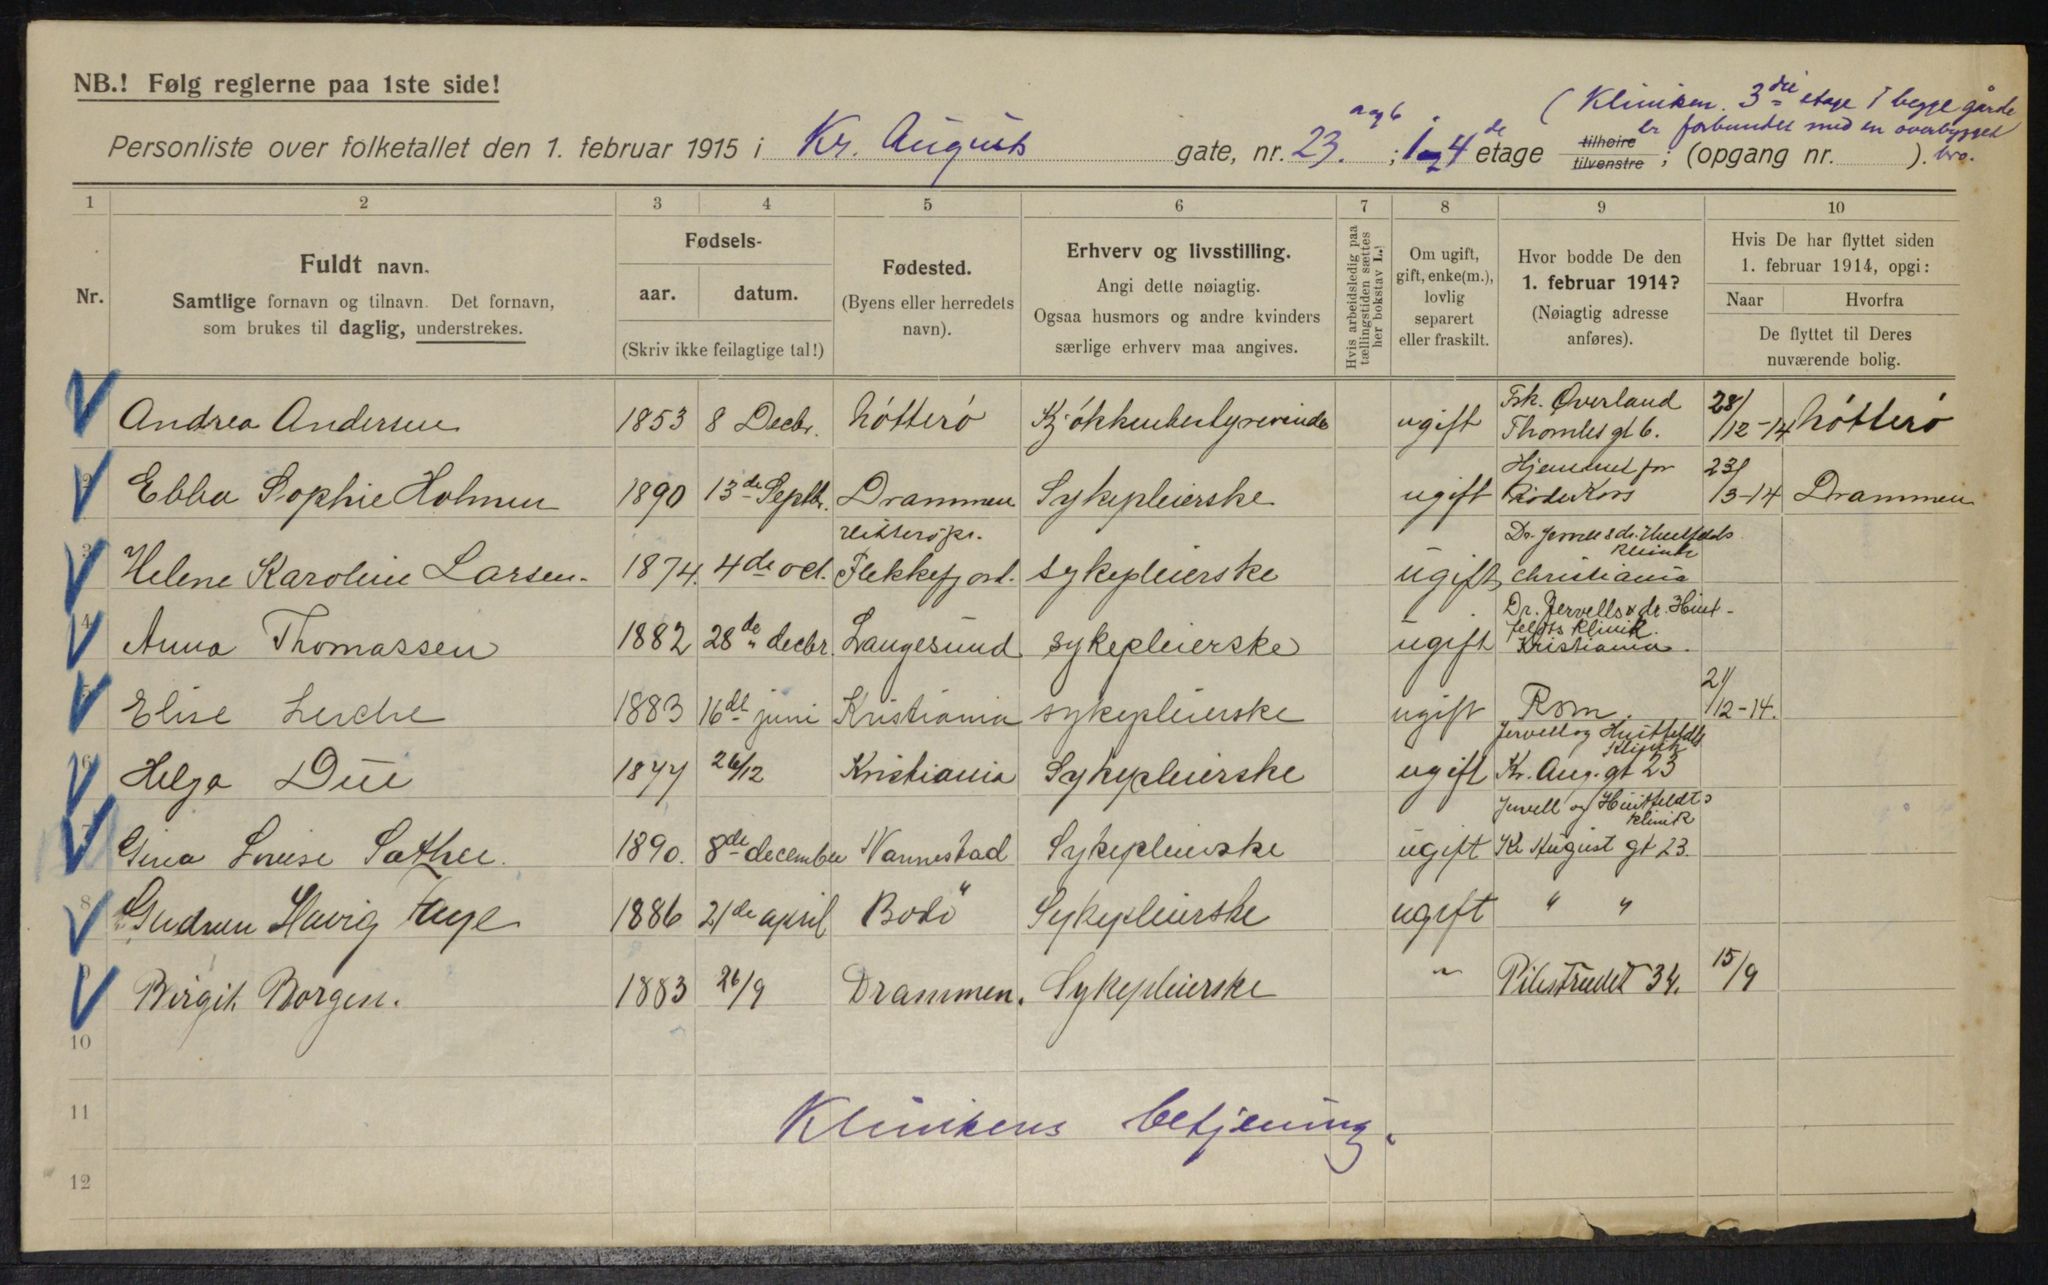 NB.! Følg reglerne paa 1ste side!
(Kliniken. 3die etage I begge gårde
er forbundet med en overbygget
bro.
Personliste over folketallet den 1. februar 1915 i Kr. Augusts gate, nr. 23. ; 1 og 4de etage tilhøire tilvenstre ; (opgang nr. ).
1 2 3 4 5 6 7 8 9 10
Nr.
Fuldt navn.
Samtlige fornavn og tilnavn. Det fornavn,
som brukes til daglig, understrekes.
Fødsels-
aar. datum.
(Skriv ikke feilagtige tal!)
Fødested.
(Byens eller herredets
navn).
Erhverv og livsstilling.
Angi dette nøiagtig.
Ogsaa husmors og andre kvinders
særlige erhverv maa angives.
Hvis arbeidsledig paa
tællingstiden sættes
her bokstav L.!
Om ugift,
gift, enke(m.),
lovlig
separert
eller fraskilt.
Hvor bodde De den
1. februar 1914?
(Nøiagtig adresse
anføres).
Hvis De har flyttet siden
1. februar 1914, opgi:
Naar Hvorfra
De flyttet til Deres
nuværende bolig.
Andrea Andersen 1853 8 Decbr. Nötterö Kjökkenbestyrerinde ugift Frk. Øverland Thomles gt 6. 28/12-14 Nötterö
2 Ebba Sophie Holmen 1890 13de Septbr. Drammen Sykepleierske ugift Hjemmet for Røde Kors 23/3-14 Drammen
3 Helene Karoline Larsen. 1874. 4de oct. Flekkefjord. sykepleierske ugift Klinik Christiania
4 Anna Thomassen 1882 28de decbr. Langesund sykepleierske ugift Dr. Jervells & dr. Huitfeldts Klinik. Kristiania.
5 Elise Lerche 1883 16de juni Kristiania sykepleierske ugift Rom. 21/12-14.
6 Helga Düe 1877 26/12 Kristiania Sykepleierske ugift Jervell og Huitfeldts Klinik Kr. Aug. gt 23
7 Gina Louise Sæther. 1890. 8de december Vannestad Sykepleierske ugift Jervell og Huitfeldts Klinik Kr August gt 23.
8 Gudrun Hauge 1886 21de april Bodö Sykepleierske ugift " "
9 Birgit Borgen. 1883 26/9 Drammen. Sykepleierske " Pilestrædet 34. 15/9
10
11 Klinikens betjening.
12